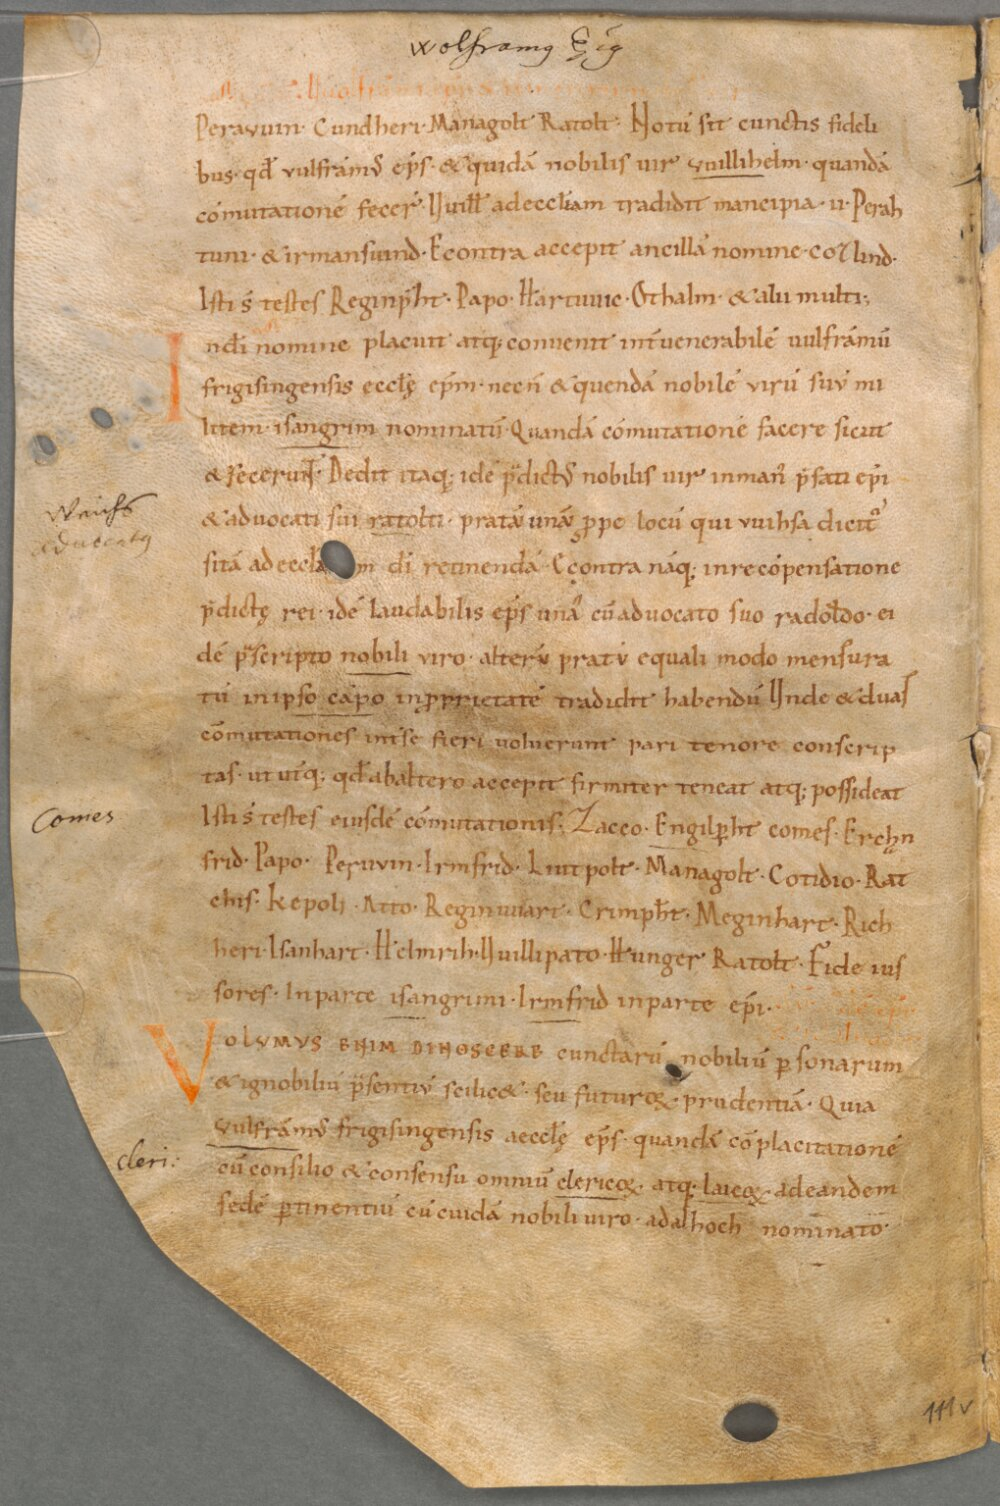 wolframg
Peravuin · Cundheri · Managolt Ratolt · Notū sit cunctis fideli
bus · qđ vulfrāmꝰ ep̄s · & quidā nobilis uir vuillihelm · quandā
cōmutationē fecer̄ · Uuill̄ad eccl̄iam tradidit mancipia · ii · Perah
tuni · & irmansuind · Econtra accepit ancillā nomine · cozlind ·
Isti s̄ testes Reginp̄ht · Papo · Hartuuic · Othalm · & alii multi;
I nđi nomine placuit atq; conuenit int̄ venerabilē uulfrāmū
frigisingensis eccl̄ę ep̄m · necn̄ & quendā nobilē virū suū mi
litem · isangrim nominatū · Quandā cōmutationē facere sicut
& fecerunt̄ · Dedit itaq; idē p̄dictꝰ nobilis uir in man̄ p̄fati ep̄i
& advocati sui ratolti · pratū unū ꝓpe locū qui vuihsa dicit᷑
sitā ad eccl̄a m đi retinendā · Econtra nāq; in recōpensatione
p̄dictę rei · idē laudabilis ep̄s unā cū advocato suo radoldo · ei
dē p̄scripto nobili viro · alterū pratū equali modo mensura
tū in ipso cāpo in ꝓprietatē tradidit habendū Unde & duas
cōmutationes int̄ se fieri uoluerunt pari tenore conscrip
tas · ut utq; qđ ab altero accepit firmiter teneat atq; possideat
Comes
Isti s̄ testes eiusdē cōmutationis; Zacco · Engilp̄ht comes · Erchn
frid · Papo · Peruvin · Irmfrid · Liutpolt · Managolt · Cotidio · Rat
chis · Kepolf · Atto · Reginuuart · Crimp̄ht · Meginhart · Rich
heri · Isanhart · Helmrih · Uuillipato · Hunger Ratolt · Fide ius
sores · In parte isangrimi · Irmfrid in parte ep̄i ·
VOLUMUS ENIM DINOSCERE cunctarū nobiliū ꝑsonarum
& ignobiliū p̄sentiū scilic& · seu futuroꝝ · prudentiā · Quia
vulfrāmꝰ frigisingensis aeccl̄ę ep̄s · quandā cōplacitationē
cleri:
cū consilio & consensu omniū clericoꝝ · atq; laicoꝝ · ad eandem
sedē ꝑtinentiū cū cuidā nobili uiro · adalhoch nominato ·
111v